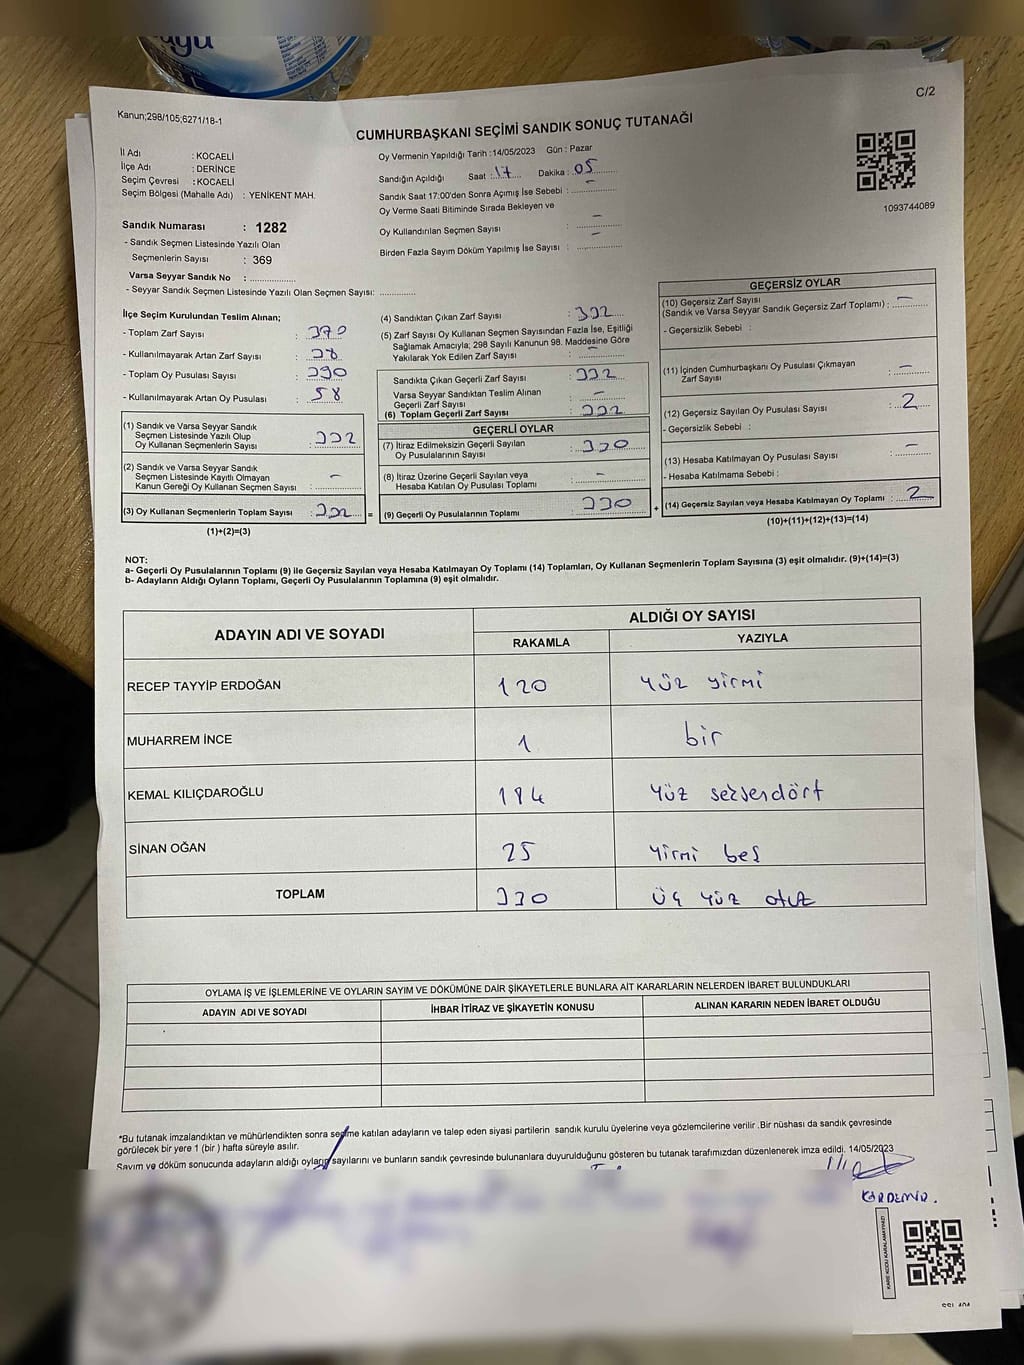 C/2
Kanun;298/105;6271/18-1
CUMHURBAŞKANI SEÇİMİ SANDIK SONUÇ TUTANAĞI
1093744089
İl Adı : KOCAELİ
İlçe Adı : DERİNCE
Seçim Çevresi : KOCAELİ
Seçim Bölgesi (Mahalle Adı) : YENİKENT MAH.
Sandık Numarası : 1282
- Sandık Seçmen Listesinde Yazılı Olan
Seçmenlerin Sayısı : 369
Varsa Seyyar Sandık No : ..............
- Seyyar Sandık Seçmen Listesinde Yazılı Olan Seçmen Sayısı: ............
Oy Vermenin Yapıldığı Tarih :14/05/2023 Gün : Pazar
Sandığın Açıldığı Saat : 17 Dakika : 05
Sandık Saat 17:00'den Sonra Açımış İse Sebebi : –
Oy Verme Saati Bitiminde Sırada Bekleyen ve
Oy Kullandırılan Seçmen Sayısı –
Birden Fazla Sayım Döküm Yapılmış İse Sayısı : –
İlçe Seçim Kurulundan Teslim Alınan;
- Toplam Zarf Sayısı : 370
- Kullanılmayarak Artan Zarf Sayısı : 38
- Toplam Oy Pusulası Sayısı : 390
- Kullanılmayarak Artan Oy Pusulası : 58
(1) Sandık ve Varsa Seyyar Sandık
Seçmen Listesinde Yazılı Olup
Oy Kullanan Seçmenlerin Sayısı : 332
(2) Sandık ve Varsa Seyyar Sandık
Seçmen Listesinde Kayıtlı Olmayan
Kanun Gereği Oy Kullanan Seçmen Sayısı : –
(3) Oy Kullanan Seçmenlerin Toplam Sayısı : 332 =
(1)+(2)=(3)
(4) Sandıktan Çıkan Zarf Sayısı : 332
(5) Zarf Sayısı Oy Kullanan Seçmen Sayısından Fazla İse, Eşitliği
Sağlamak Amacıyla; 298 Sayılı Kanunun 98. Maddesine Göre
Yakılarak Yok Edilen Zarf Sayısı : –
Sandıkta Çıkan Geçerli Zarf Sayısı : 332
Varsa Seyyar Sandıktan Teslim Alınan
Geçerli Zarf Sayısı : –
(6) Toplam Geçerli Zarf Sayısı : 332
GEÇERLİ OYLAR
(7) İtiraz Edilmeksizin Geçerli Sayılan
Oy Pusulalarının Sayısı : 330
(8) İtiraz Üzerine Geçerli Sayılan veya
Hesaba Katılan Oy Pusulası Toplamı : –
(9) Geçerli Oy Pusulalarının Toplamı : 330 +
GEÇERSİZ OYLAR
(10) Geçersiz Zarf Sayısı
(Sandık ve Varsa Seyyar Geçersiz Zarf Toplamı) : –
- Geçersizlik Sebebi :
(11) İçinden Cumhurbaşkanı Oy Pusulası Çıkmayan
Zarf Sayısı : –
(12) Geçersiz Sayılan Oy Pusulası Sayısı : 2
- Geçersizlik Sebebi :
(13) Hesaba Katılmayan Oy Pusulası Sayısı : –
- Hesaba Katılmama Sebebi :
(14) Geçersiz Sayılan veya Hesaba Katılmayan Oy Toplamı : 2
(10)+(11)+(12)+(13)=(14)
NOT:
a- Geçerli Oy Pusulalarının Toplamı (9) ile Geçersiz Sayılan veya Hesaba Katılmayan Oy Toplamı (14) Toplamları, Oy Kullanan Seçmenlerin Toplam Sayısına (3) eşit olmalıdır. (9)+(14)=(3)
b- Adayların Aldığı Oyların Toplamı, Geçerli Oy Pusulalarının Toplamına (9) eşit olmalıdır.
ADAYIN ADI VE SOYADI
ALDIĞI OY SAYISI
RAKAMLA YAZIYLA
RECEP TAYYİP ERDOĞAN 120 yüz yirmi
MUHARREM İNCE 1 bir
KEMAL KILIÇDAROĞLU 184 yüz seksendört
SİNAN OĞAN 25 yirmi beş
TOPLAM 330 üç yüz otuz
OYLAMA İŞ VE İŞLEMLERİNE VE OYLARIN SAYIM VE DÖKÜMÜNE DAİR ŞİKAYETLERLE BUNLARA AİT KARARLARIN NELERDEN İBARET BULUNDUKLARI
ADAYIN ADI VE SOYADI İHBAR İTİRAZ VE ŞİKAYETİN KONUSU ALINAN KARARIN NEDEN İBARET OLDUĞU
*Bu tutanak imzalandıktan ve mühürlendikten sonra seçime katılan adayların ve talep eden siyasi partilerin sandık kurulu üyelerine veya gözlemcilerine verilir .Bir nüshası da sandık çevresinde
görülecek bir yere 1 (bir ) hafta süreyle asılır.
Sayım ve döküm sonucunda adayların aldığı oyların sayılarını ve bunların sandık çevresinde bulunanlara duyurulduğunu gösteren bu tutanak tarafımızdan düzenlenerek imza edildi. 14/05/2023
KARDEMİR.
KARE KODU KARALAMAYINIZ!